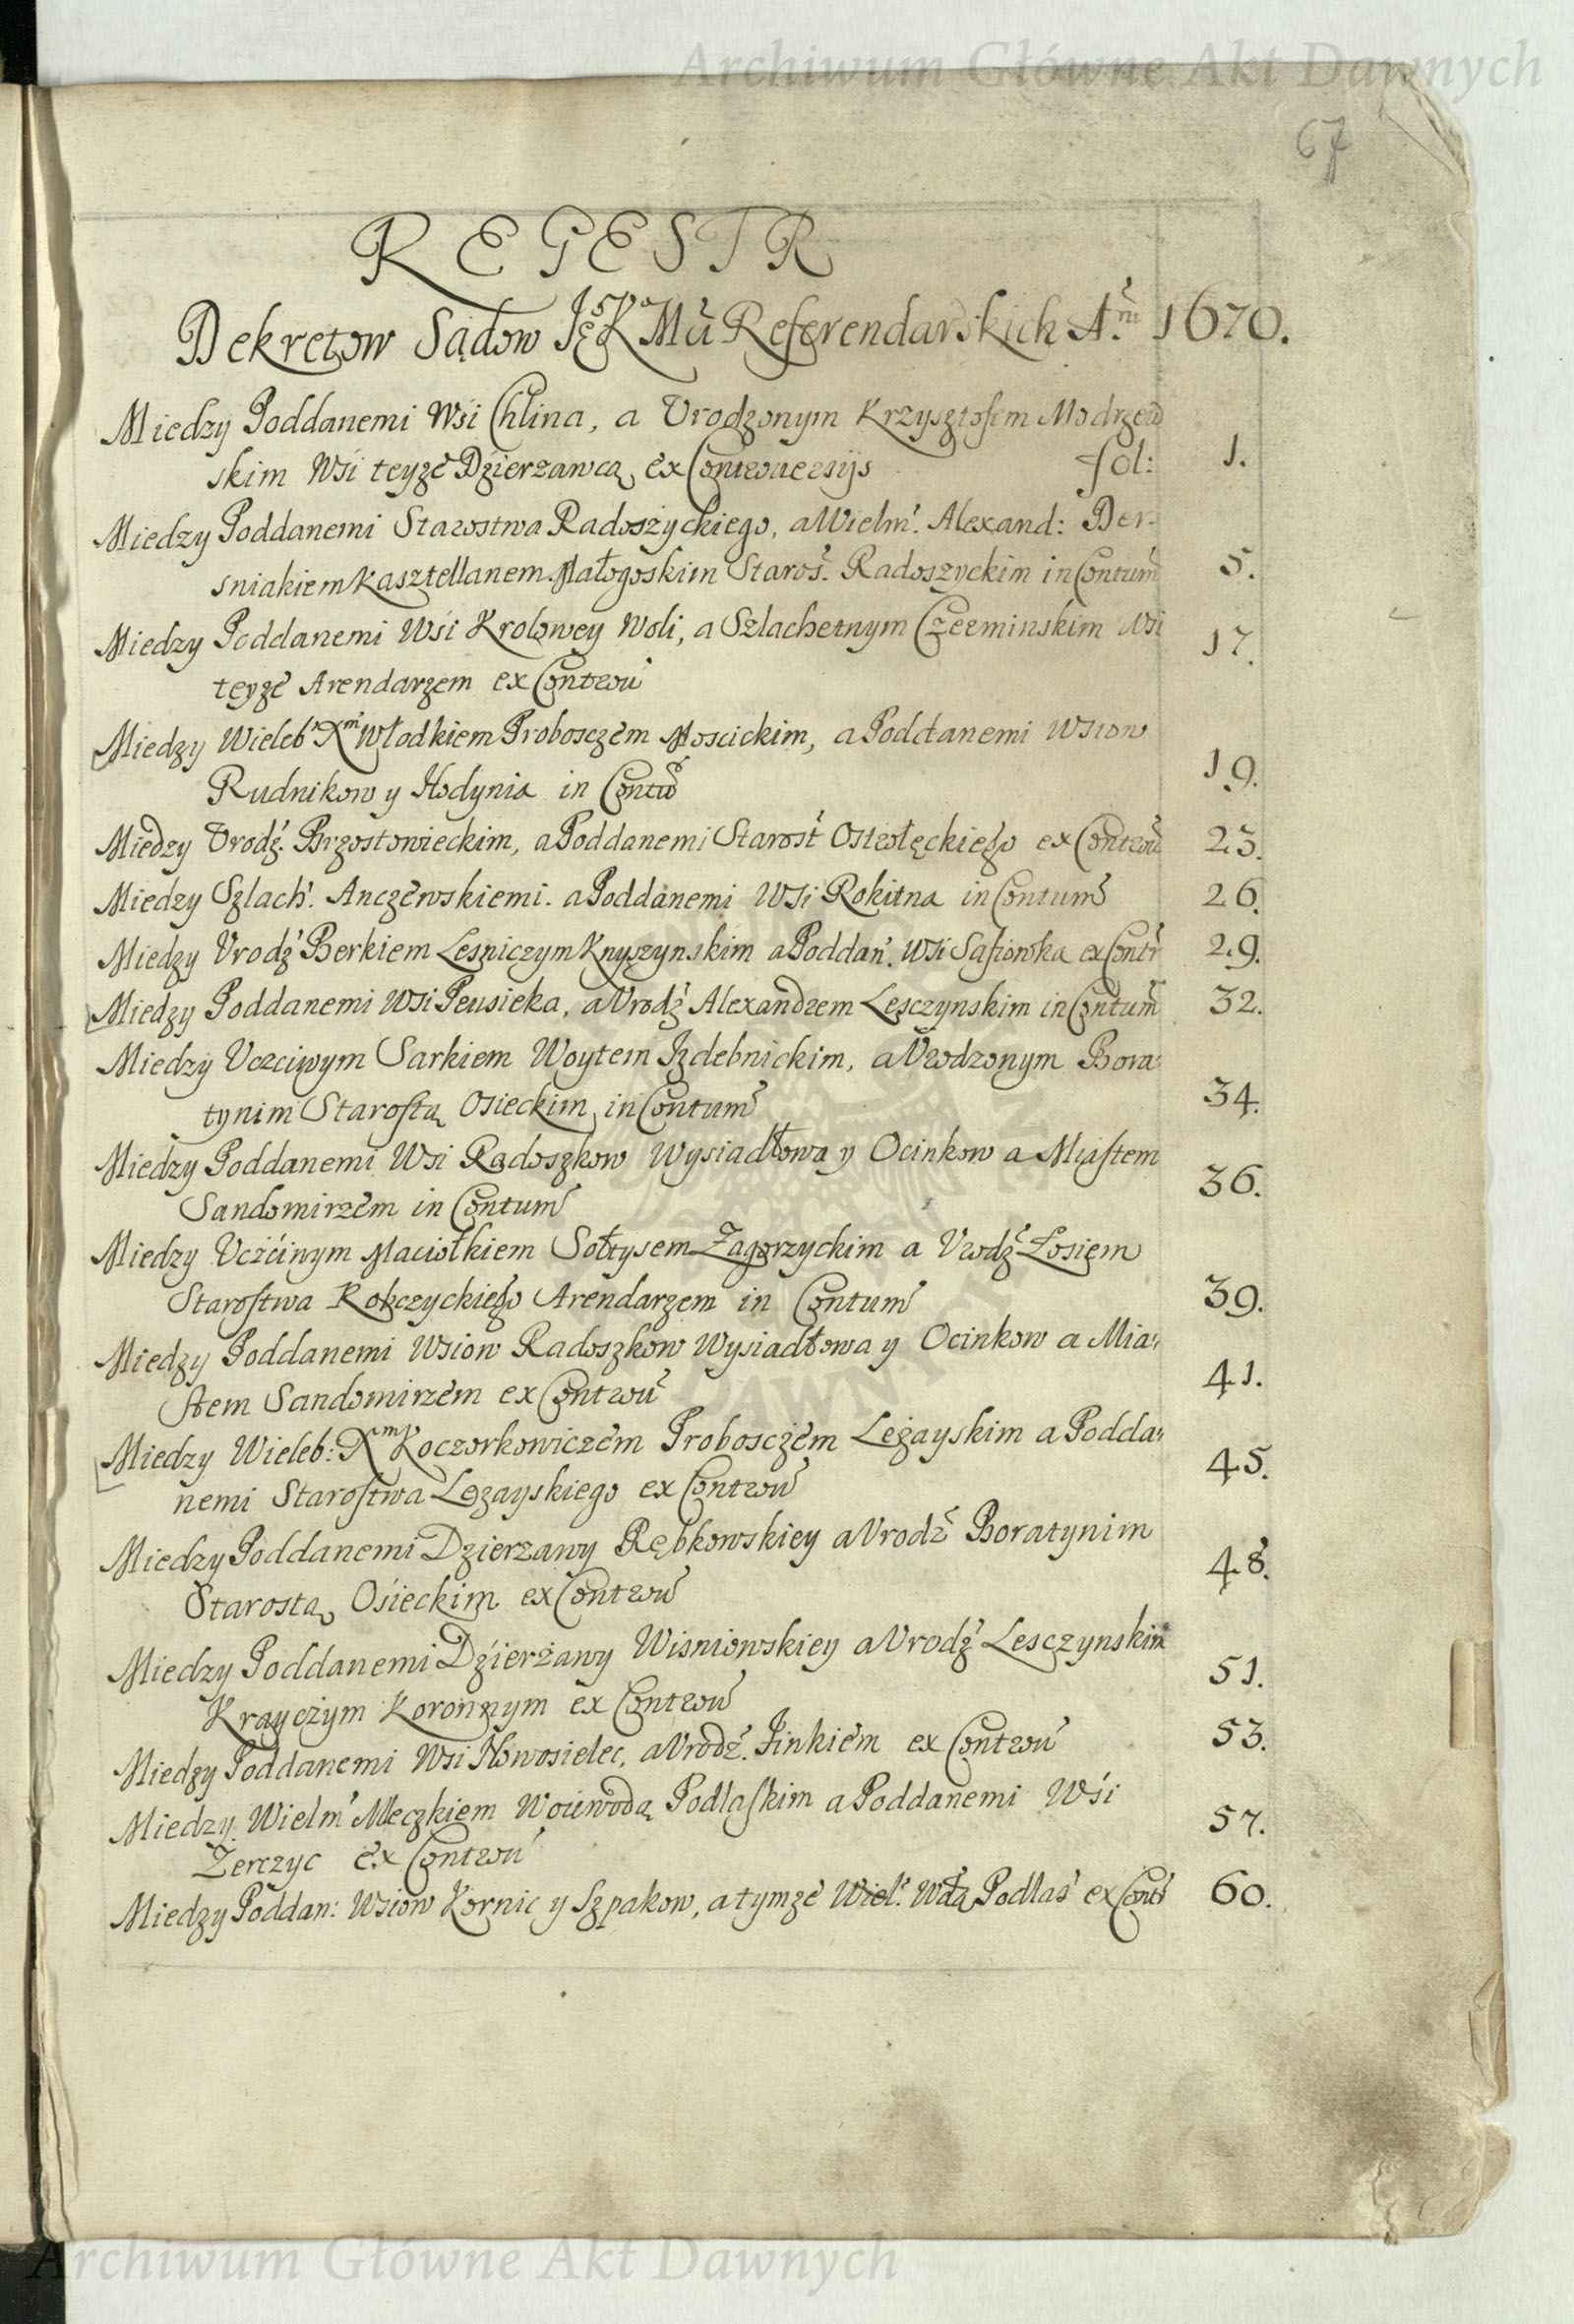 Archiwum Główne Akt Dawnych
67
REGESTR
Dekretow Sądow JęoKMći Referendarskich A.ni 1670.
Miedzy Poddanemi Wsi Chlina, a Vrodzonym Krzysztofem Modrzew
skim Wsi teyze Dzierzawcą ex Controuersijs fol: 1.
Miedzy Poddanemi Starostwa Radoszyckiego, a Wielm. Alexand: Der-
sniakiem Kasztellanem Małogoskim Staros. Radoszyckim in Contum 5.
Miedzy Poddanemi Wsi Krolowey Woli, a Szlachetnym Czerminskim Wsi 17.
teyze Arendarzem ex Controu
Miedzy Wieleb Xm Włodkiem Proboszczem Moscickim, a Poddanemi Wsiow
Rudnikow y Hodynia in Contu 19.
Miedzy Vrodz. Brzostowieckim, a Poddanemi Starost Ostrołęckiego ex Controu 23.
Miedzy Szlach. Anczewskiemi. a Poddanemi Wsi Rokitna in Contum 26.
Miedzy Vrodz Berkiem Lesniczym Knyszynskim a Poddan. Wsi Safiowka ex Contr 29.
Miedzy Poddanemi Wsi Peusieka, a Vrodz Alexandrem Lesczynskim in Contum 32.
Miedzy Vczciwym Sarkiem Woytem Izdebnickim, a Vrodzonym Bora-
tynim Starostą Osieckim in Contum 34.
Miedzy Poddanemi Wsi Radoszkow Wysiadłowa y Ocinkow a Miastem
Sandomirzem in Contum 36.
Miedzy Vcżciwym Maciołkiem Sołtysem Zagorzyckim a Vrodz Łosiem
Starostwa Robczyckiego Arendarzem in Contum 39.
Miedzy Poddanemi Wsiow Radoszkow Wysiadłowa y Ocinkow a Mia-
stem Sandomirzem ex Controu 41.
Miedzy Wieleb: Xm Koczorkowiczem Proboscżem Leżayskim a Podda-
nemi Starostwa Leżayskiego ex Controu 45.
Miedzy Poddanemi Dzierzawy Rębkowskiey a Vrodz Boratynim
Starostą Osieckim ex Controu 48.
Miedzy Poddanemi Dzierżawy Wisniowskiey a Vrodz Lesczynskim
Kraycżym Koronnym ex Controu 51.
Miedzy Poddanemi Wsi Nowosielec, a Vrodz. Pinkiem ex Controu 53.
Miedzy Wielm Mleczkiem Woiewodą Podlaskim a Poddanemi Wsi
Zerczyc ex Controu 57.
Miedzy Poddan: Wsiow Kornic y Szpakow, a tymze Wiel. Wdą Podlas ex Contr 60.
Archiwum Główne Akt Dawnych